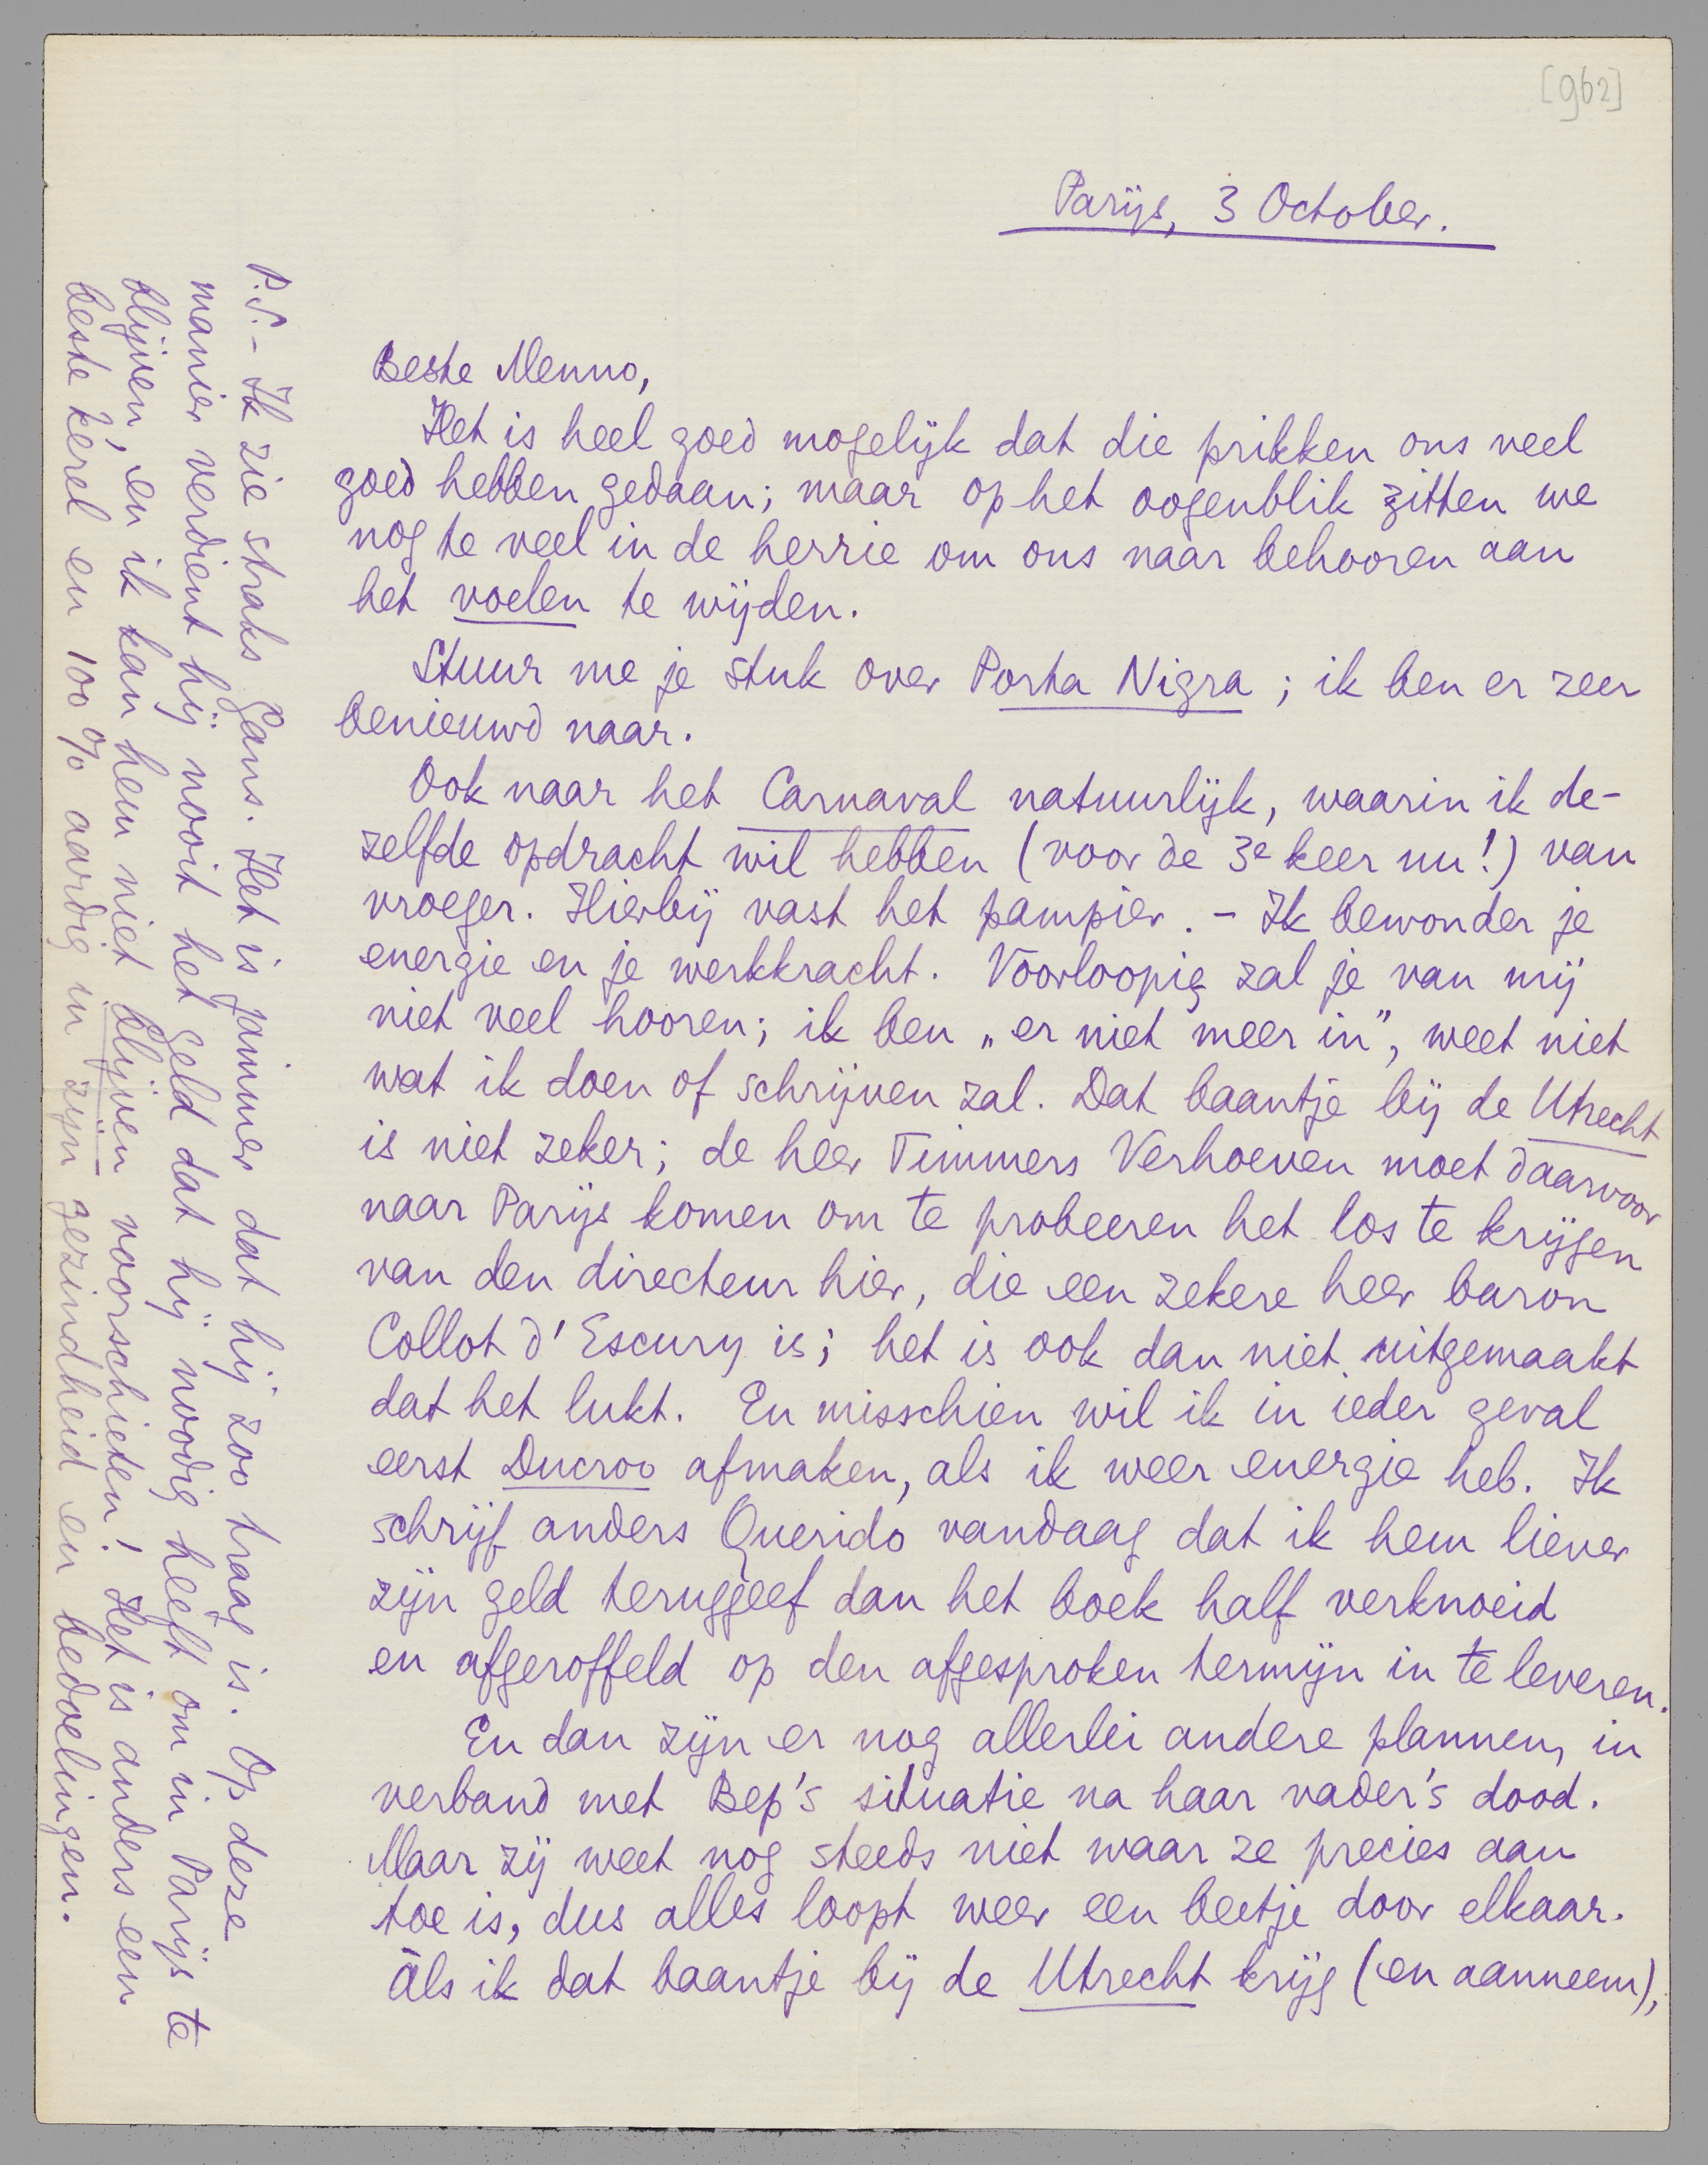 [962]
Parijs, 3 October.
Beste Menno,
Het is heel goed mogelijk dat die prikken ons veel
goed hebben gedaan; maar op het oogenblik zitten we
nog te veel in de herrie om ons naar behooren aan
het voelen te wijden.
Stuur me je stuk over Porta Nigra; ik ben er zeer
benieuwd naar.
Ook naar het Carnaval natuurlijk, waarin ik de-
zelfde opdracht wil hebben (voor de 3e keer nu!) van
vroeger. Hierbij vast het pampier. - Ik bewonder je
energie en je werkkracht. Voorloopig zal je van mij
niet veel hooren; ik ben „er niet meer in”, weet niet
wat ik doen of schrijven zal. Dat baantje bij de Utrecht
is niet zeker; de heer Timmers Verhoeven moet daarvoor
naar Parijs komen om te probeeren het los te krijgen
van den directeur hier, die een zekere heer baron
Collot d'Escury is; het is ook dan niet uitgemaakt
dat het lukt. En misschien wil ik in ieder geval
eerst Ducroo afmaken, als ik weer energie heb. Ik
schrijf anders Querido vandaag dat ik hem liever
zijn geld teruggeef dan het boek half verknoeid
en afgeroffeld op den afgesproken termijn in te leveren.
En dan zijn er nog allerlei andere plannen, in
verband met Bep's situatie na haar vader's dood.
Maar zij weet nog steeds niet waar ze precies aan
toe is, dus alles loopt weer een beetje door elkaar.
Als ik dat baantje bij de Utrecht krijg (en aanneem),
P.S. - Ik zie straks Gans. Het is jammer dat hij zoo traag is. Op deze
manier verdient hij nooit het geld dat hij noodig heeft om in Parijs te
blijven, en ik kan hem niet blijven voorschieten! Het is anders een
beste kerel en 100% aardig in zijn gezindheid en bedoelingen.